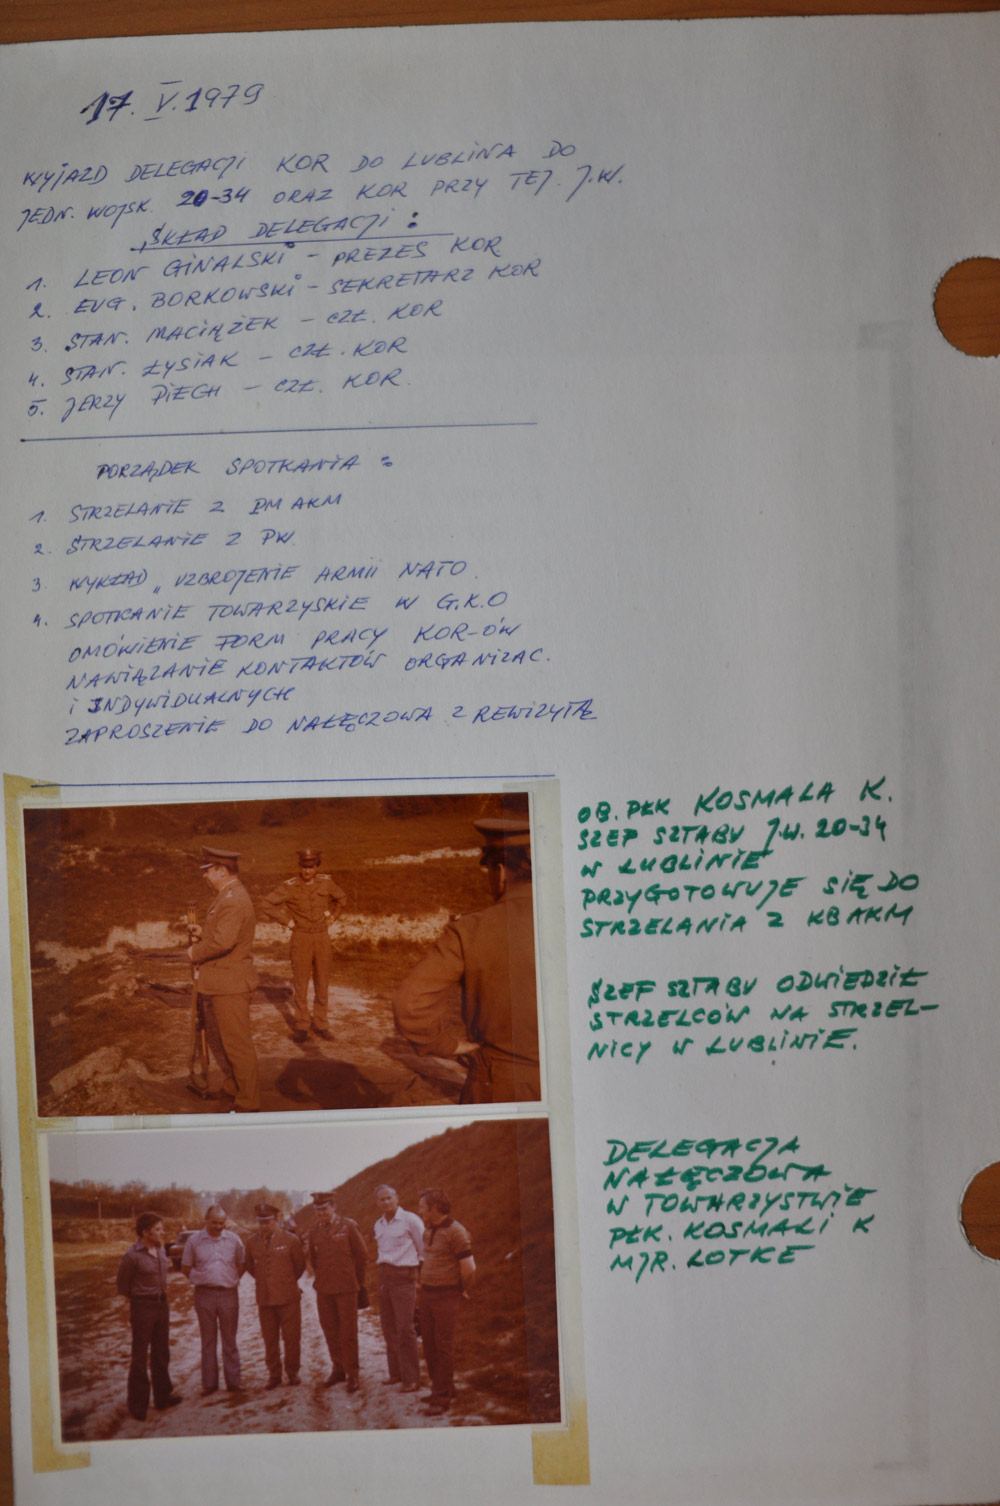 17. V. 1979
WYJAZD DELEGACJI KOR DO LUBLINA DO
JEDN. WOJSK. 20-34 ORAZ KOR PRZY TEJ. J.W.
SKŁAD DELEGACJI:
1. LEON GINALSKI - PREZES KOR
2. EUG. BORKOWSKI - SEKRETARZ KOR
3. STAN. MACIĄŻEK - CZŁ. KOR
4. STAN. ŁYSIAK - CZŁ. KOR
5. JERZY PIECH - CZŁ. KOR.
PORZĄDEK SPOTKANIA:
1. STRZELANIE Z PM AKM
2. STRZELANIE Z PW.
3. WYKŁAD „UZBROJENIE ARMII NATO.
4. SPOTKANIE TOWARZYSKIE W G.K.O
OMÓWIENIE FORM PRACY KOR-ÓW
NAWIĄZANIE KONTAKTÓW ORGANIZAC.
i INDYWIDUALNYCH
ZAPROSZENIE DO NAŁĘCZOWA Z REWIZYTĄ
OB. PŁK KOSMALA K.
SZEF SZTABU J.W. 20-34
W LUBLINIE
PRZYGOTOWUJE SIĘ DO
STRZELANIA Z KB AKM
SZEF SZTABU ODWIEDZIŁ
STRZELCÓW NA STRZEL-
NICY W LUBLINIE.
DELEGACJA
NAŁĘCZOWA
W TOWARZYSTWIE
PŁK. KOSMALI K
MJR. LOTKE